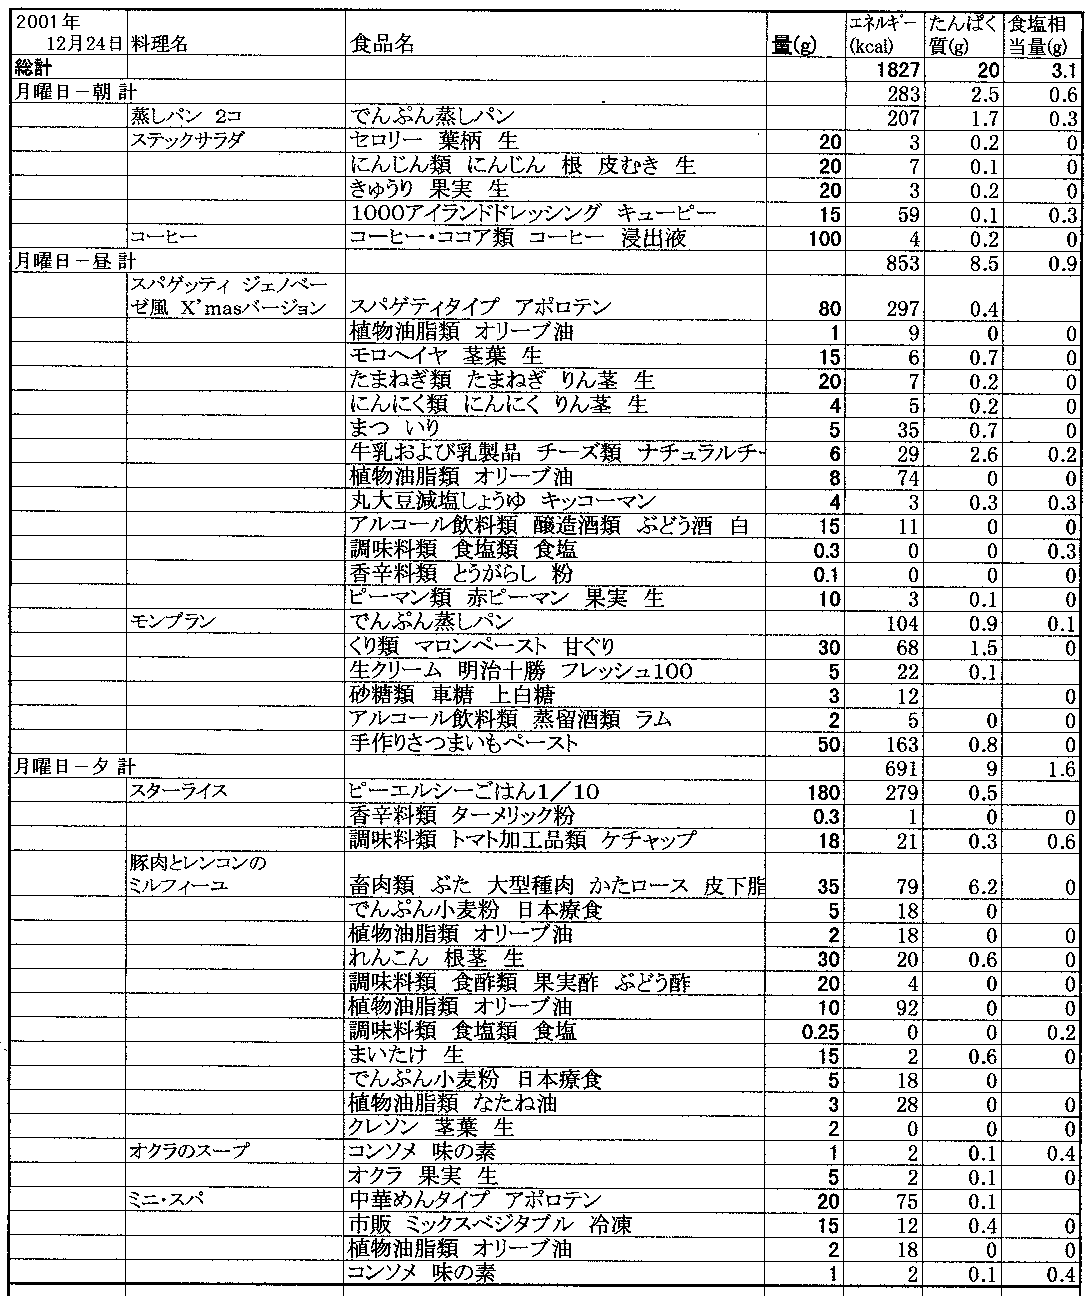 2001年
12月24日 料理名 食品名 量(g) エネルギー(kcal) たんぱく質(g) 食塩相当量(g)
総計 1827 20 3.1
月曜日－朝 計 283 2.5 0.6
蒸しパン 2コ でんぷん蒸しパン 207 1.7 0.3
ステックサラダ セロリー 葉柄 生 20 3 0.2 0
にんじん類 にんじん 根 皮むき 生 20 7 0.1 0
きゅうり 果実 生 20 3 0.2 0
1000アイランドドレッシング キューピー 15 59 0.1 0.3
コーヒー コーヒー・ココア類 コーヒー 浸出液 100 4 0.2 0
月曜日－昼 計 853 8.5 0.9
スパゲッティ ジェノベー
ゼ風 X'masバージョン スパゲティタイプ アポロテン 80 297 0.4
植物油脂類 オリーブ油 1 9 0 0
モロヘイヤ 茎葉 生 15 6 0.7 0
たまねぎ類 たまねぎ りん茎 生 20 7 0.2 0
にんにく類 にんにく りん茎 生 4 5 0.2 0
まつ いり 5 35 0.7 0
牛乳および乳製品 チーズ類 ナチュラルチー 6 29 2.6 0.2
植物油脂類 オリーブ油 8 74 0 0
丸大豆減塩しょうゆ キッコーマン 4 3 0.3 0.3
アルコール飲料類 醸造酒類 ぶどう酒 白 15 11 0 0
調味料類 食塩類 食塩 0.3 0 0 0.3
香辛料類 とうがらし 粉 0.1 0 0 0
ピーマン類 赤ピーマン 果実 生 10 3 0.1 0
モンブラン でんぷん蒸しパン 104 0.9 0.1
くり類 マロンペースト 甘ぐり 30 68 1.5 0
生クリーム 明治十勝 フレッシュ100 5 22 0.1
砂糖類 車糖 上白糖 3 12 0
アルコール飲料類 蒸留酒類 ラム 2 5 0 0
手作りさつまいもペースト 50 163 0.8 0
月曜日－夕 計 691 9 1.6
スターライス ピーエルシーごはん1／10 180 279 0.5
香辛料類 ターメリック粉 0.3 1 0 0
調味料類 トマト加工品類 ケチャップ 18 21 0.3 0.6
豚肉とレンコンの
ミルフィーユ 畜肉類 ぶた 大型種肉 かたロース 皮下脂 35 79 6.2 0
でんぷん小麦粉 日本療食 5 18 0
植物油脂類 オリーブ油 2 18 0 0
れんこん 根茎 生 30 20 0.6 0
調味料類 食酢類 果実酢 ぶどう酢 20 4 0 0
植物油脂類 オリーブ油 10 92 0 0
調味料類 食塩類 食塩 0.25 0 0 0.2
まいたけ 生 15 2 0.6 0
でんぷん小麦粉 日本療食 5 18 0
植物油脂類 なたね油 3 28 0 0
クレソン 茎葉 生 2 0 0 0
オクラのスープ コンソメ 味の素 1 2 0.1 0.4
オクラ 果実 生 5 2 0.1 0
ミニ・スパ 中華めんタイプ アポロテン 20 75 0.1
市販 ミックスベジタブル 冷凍 15 12 0.4 0
植物油脂類 オリーブ油 2 18 0 0
コンソメ 味の素 1 2 0.1 0.4